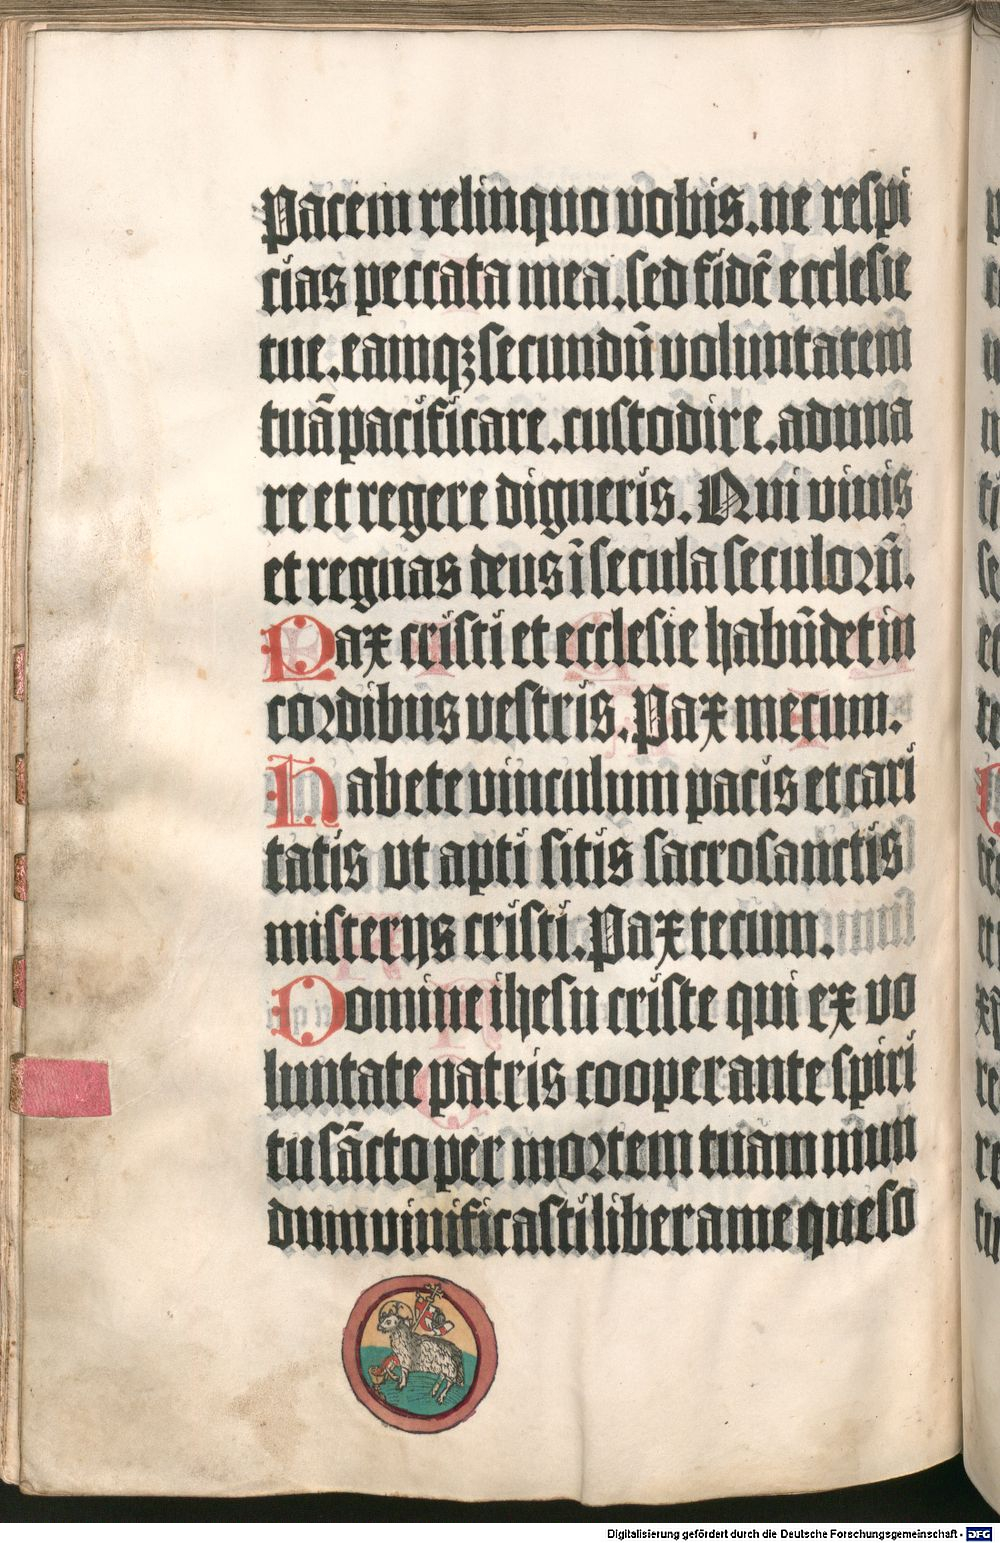 Pacem relinquo vobis. ne respi
cias peccata mea. sed fidē ecclesie
tue. eamqꝫ secundū voluntatem
tuā pacificare. custodire. aduna
re et regere digneris. Qui viuis
et regnas deus ī secula seculorū.
Pax cristi et ecclesie habūdet in
cordibus vestris. Pax mecum.
Habete vinculum pacis et cari
tatis vt apti sitis sacrosanctis
misterijs cristi. Pax tecum.
Domine ihesu criste qui ex vo
luntate patris cooperante spiri
tu sācto per mortem tuam mun
dum viuificasti libera me queso
Digitalisierung gefördert durch die Deutsche Forschungsgemeinschaft - DFG